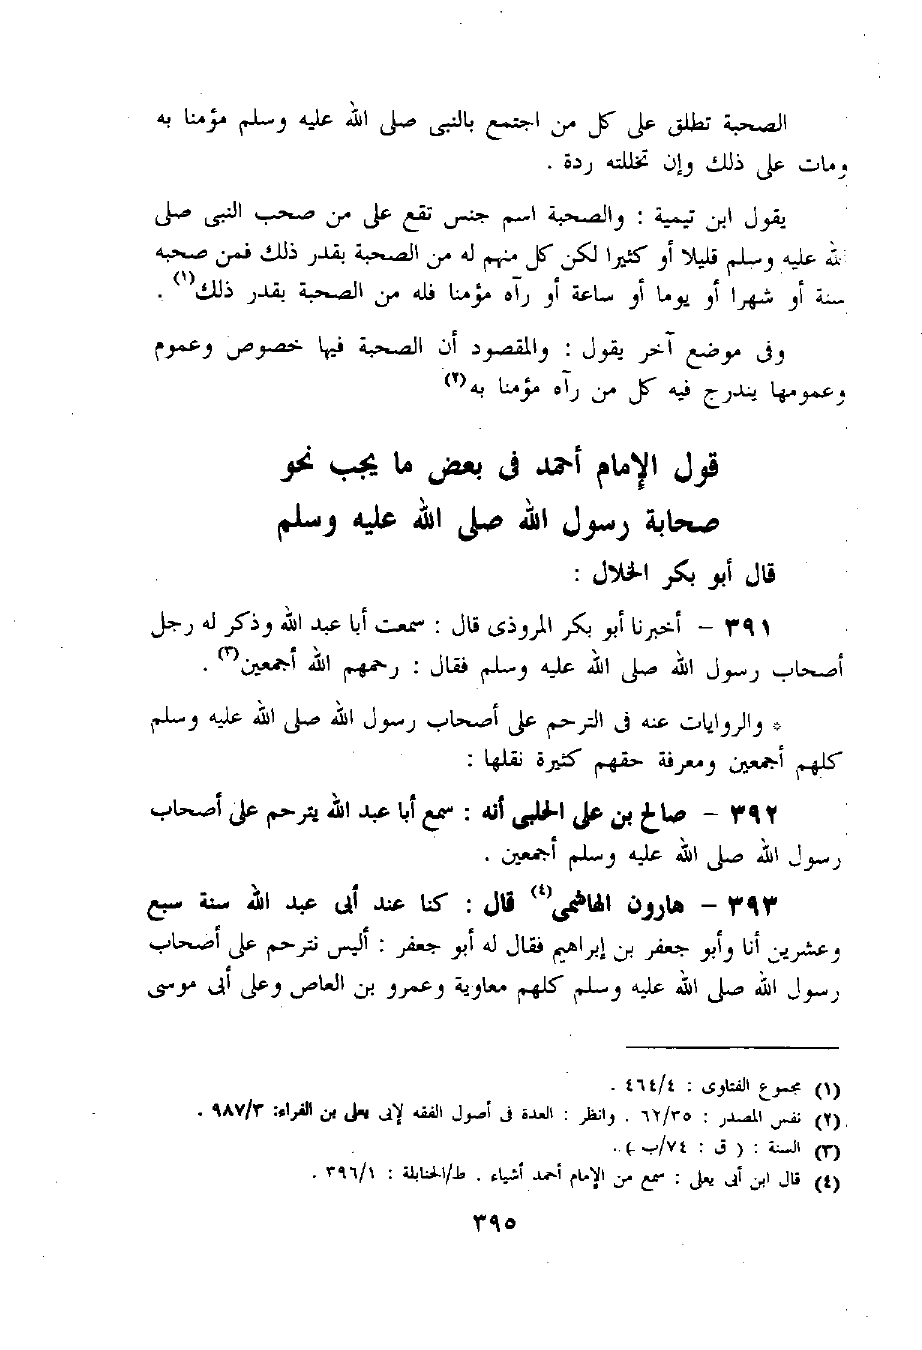 الصحبة تطلق على كل من اجتمع بالنبى صلى الله عليه وسلم مؤمنا به
ومات على ذلك وإن تخللته ردة .
يقول ابن تيمية : والصحبة اسم جنس تقع على من صحب النبى صلى
لله عليه وسلم قليلا أو كثيرا لكن كل منهم له من الصحبة بقدر ذلك فمن صحبه
سنة أو شهرا أو يوما أو ساعة أو رآه مؤمنا فله من الصحبة بقدر ذلك(١) .
وفى موضع آخر يقول : والمقصود أن الصحبة فيها خصوص وعموم
وعمومها يندرج فيه كل من رآه مؤمنا به(٢)
قول الإمام أحمد فى بعض ما يجب نحو
صحابة رسول الله صلى الله عليه وسلم
قال أبو بكر الخلال :
٣٩١ – أخبرنا أبو بكر المروذى قال : سمعت أبا عبد الله وذكر له رجل
أصحاب رسول الله صلى الله عليه وسلم فقال : رحمهم الله أجمعين(٣) .
* والروايات عنه فى الترحم على أصحاب رسول الله صلى الله عليه وسلم
كلهم أجمعين ومعرفة حقهم كثيرة نقلها :
٣٩٢ – صالح بن على الحلبى أنه : سمع أبا عبد الله يترحم على أصحاب
رسول الله صلى الله عليه وسلم أجمعين .
٣٩٣ – هارون الهاشمى(٤) قال : كنا عند أبى عبد الله سنة سبع
وعشرين أنا وأبو جعفر بن إبراهيم فقال له أبو جعفر : أليس نترحم على أصحاب
رسول الله صلى الله عليه وسلم كلهم معاوية وعمرو بن العاص وعلى أبى موسى
(١) مجموع الفتاوى : ٤٦٤/٤ .
(٢) نفس المصدر : ٦٢/٣٥ . وانظر : العدة فى أصول الفقه لإبى يعلى بن الفراء: ٩٨٧/٣ .
(٣) السنة : ( ق : ٧٤/ب ) .
(٤) قال ابن أبى يعلى : سمع من الإمام أحمد أشياء . ط/الحنابلة : ٣٩٦/١ .
٣٩٥